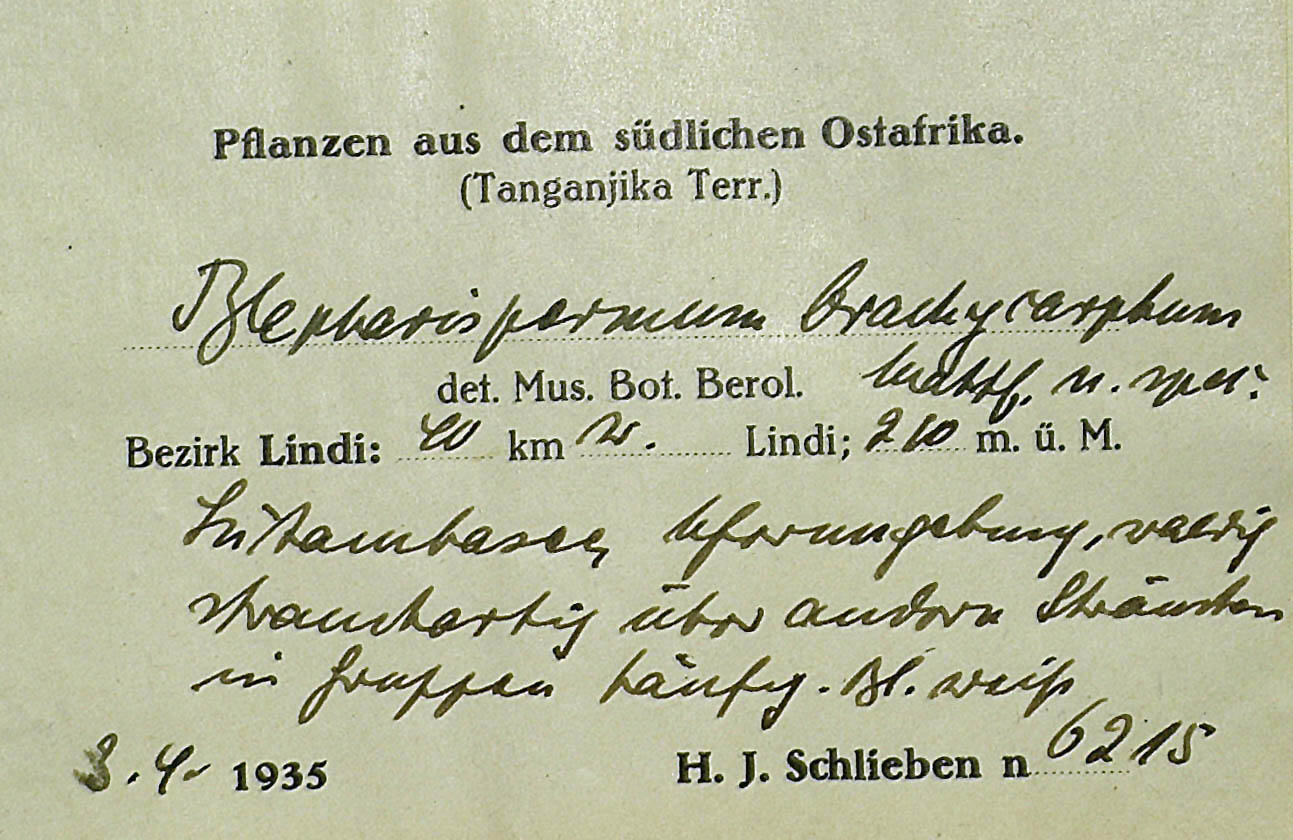 Pflanzen aus dem südlichen Ostafrika.
(Tanganjika Terr.)
Blepharispermum brachycarpum
det. Mus. Bot. Berol. Mattf. n. spec.
Bezirk Lindi: 40 km W. Lindi; 210 m. ü. M.
Lutambasee, Uferumgebung, waldig
strauchartig über andern Sträuchern
in Gruppen häufig. Bl. weiß
3. 4. 1935 H. J. Schlieben n 6215